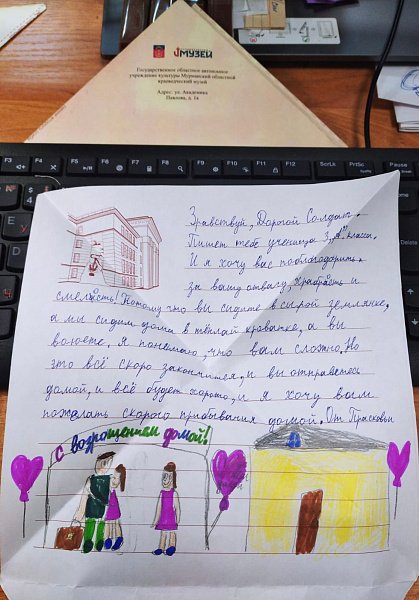 МУЗЕЙ
Государственное областное автономное
учреждение культуры Мурманский областной
краеведческий музей
Адрес: ул. Академика
Павлова, д. 1а
F3 F4 F5 F6 F7 F8 F9 F10 F11 F12 PrtSc ScrLk Pause
Здравствуй, Дорогой Солдат.
Пишет тебе ученица 3 "А" класса.
И я хочу вас поблагодарить.
за вашу отвагу, храбрасть и
смеласть! Потому что вы сидите в сырой землянке,
а мы сидим дома в тёплай кроватке, а вы
воюете, я понемаю, что вам сложно, Но
это всё скоро закончится, и вы отправетесь
домой, и всё будет хорошо, и я хочу вам
пожелать скорого прибывания домой. От Прасковьи
С возрощением домой!